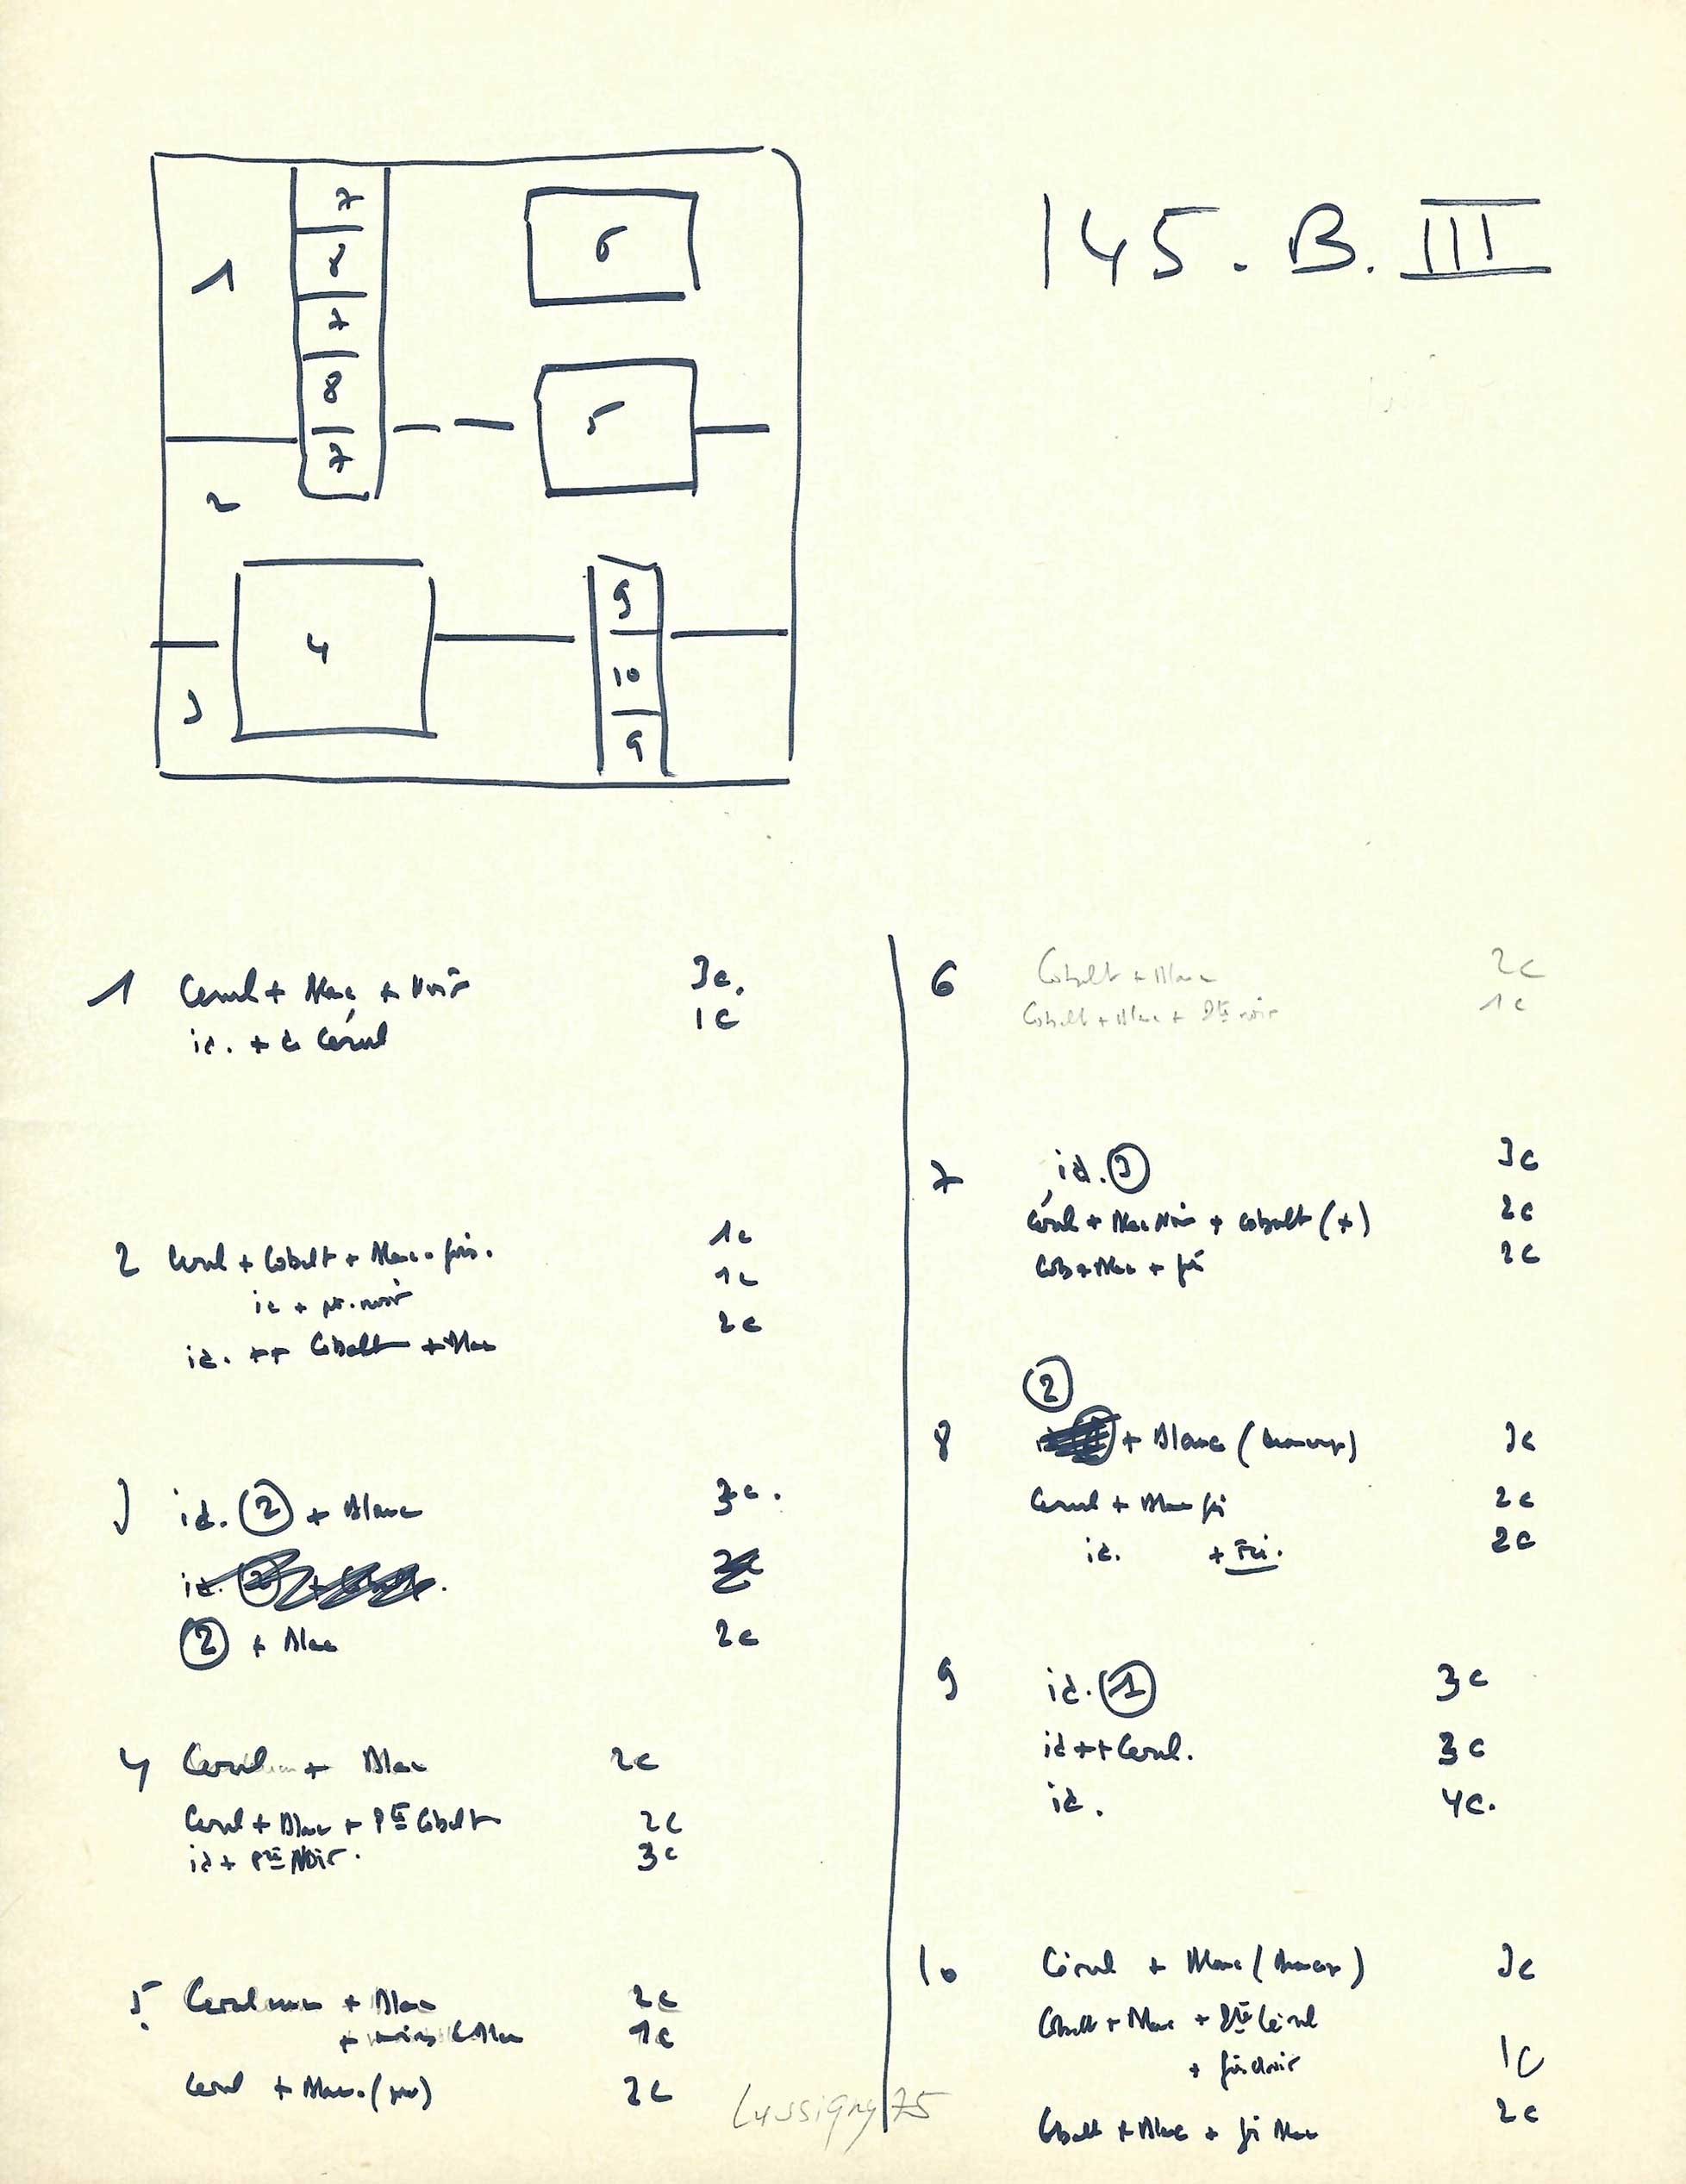 145. B. III
7
6
1
8
7
8
5
7
2
9
4
10
3
9
1 Cerul + Blanc + Noir 3c.
id. + de Cérul 1c
2 Cerul + Cobalt + Blanc + gris. 1c
id + pt. noir 1c
id. ++ Cobalt + Blanc 2c
3 id. (2) + Blanc 3c.
(2) + Blanc 2c
4 Cerul + Blanc 2c
Cerul + Blanc + Pte Cobalt 2c
id + Pte Noir. 3c
5 Ceruleum + Blanc 2c
+ moins Blanc 1c
Cerul + Blanc. 2c
6 Cobalt + Blanc 2c
Cobalt + Blanc + Pte noir 1c
7 id. (3) 3c
Cérul + Blanc Noir + Cobalt (+) 2c
Cob + Blanc + gri 2c
(2)
8 + Blanc 3c
Cerul + Blanc gri 2c
id. + Gri. 2c
9 id. (1) 3c
id ++ Cerul. 3c
id. 4c.
10 Cérul + Blanc 3c
Cobalt + Blanc + Pte Cérul
+ gris clair 1c
Cobalt + Blanc + gri Blanc 2c
Lussigny 75